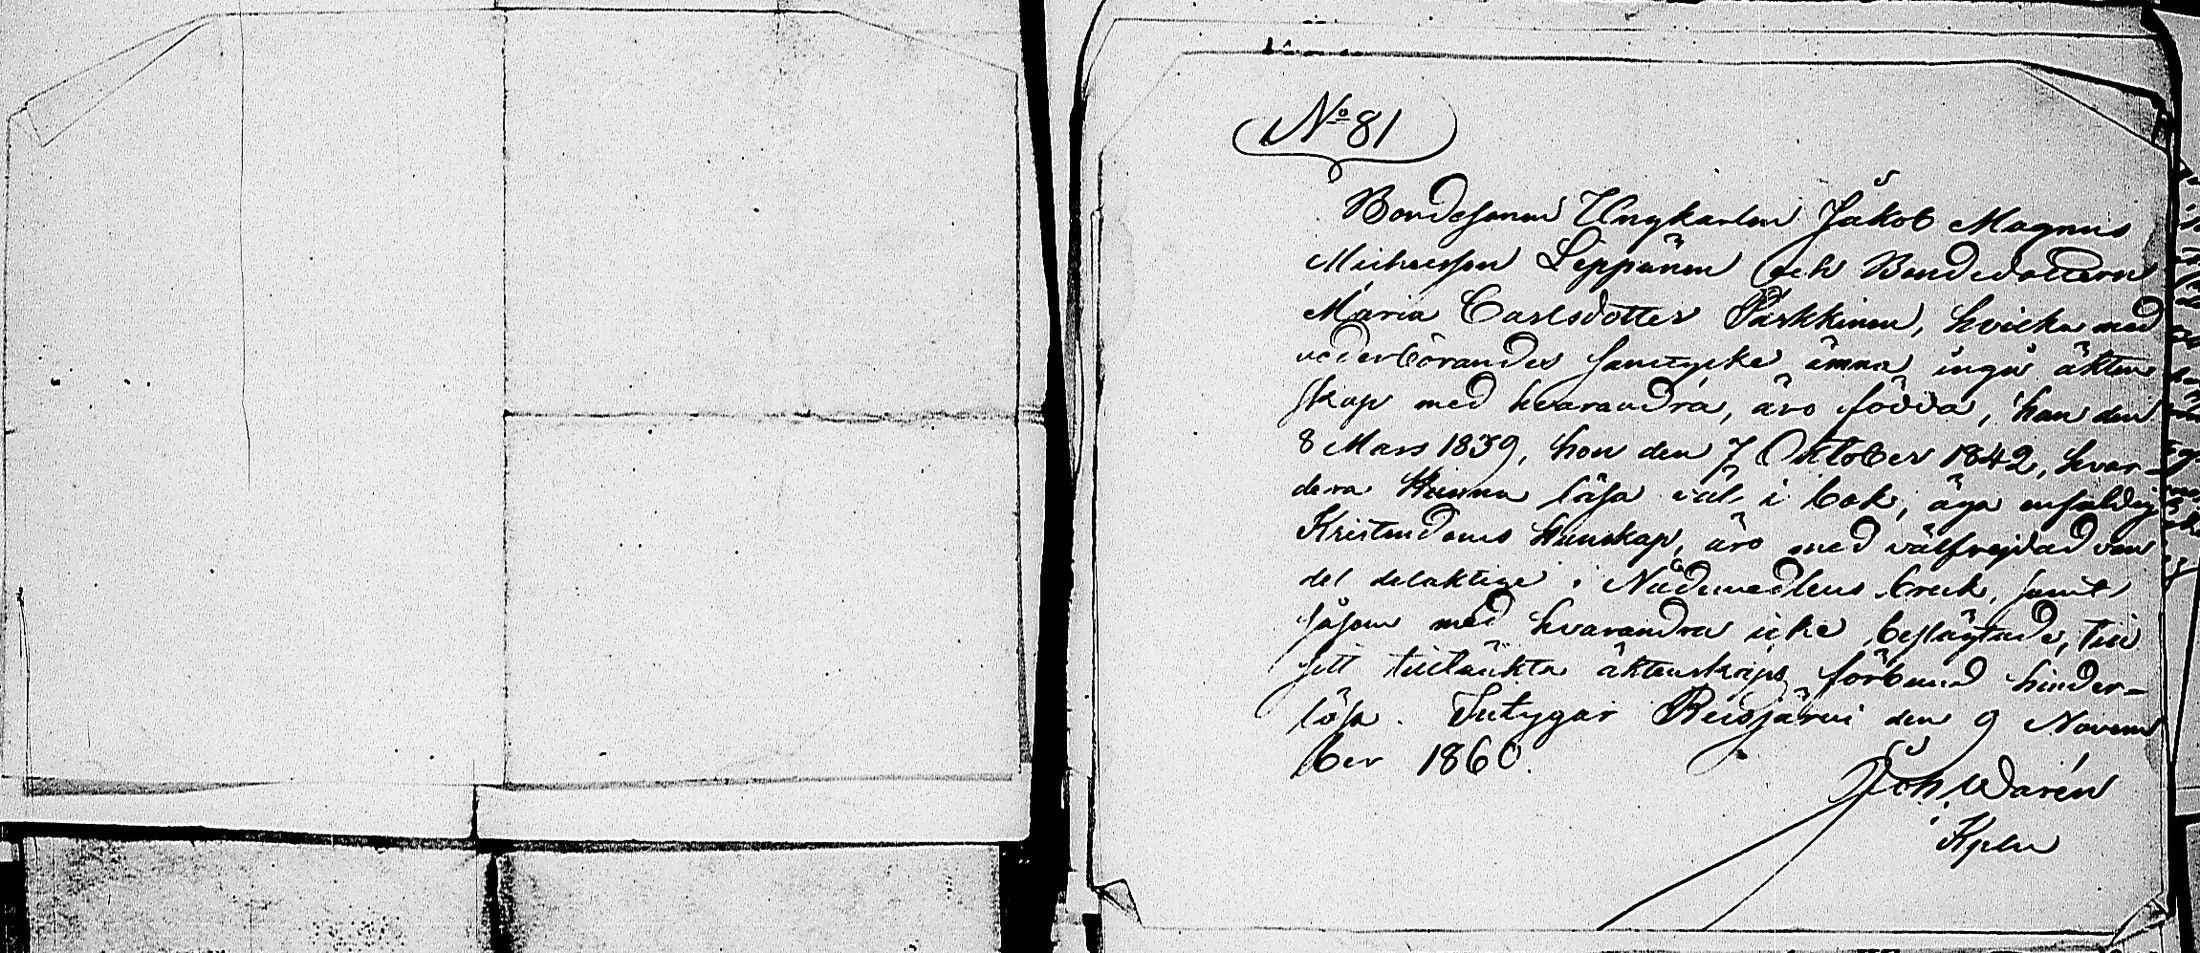 No 81
Bondesonen Ungkarlen Jakob Magnus
Michelsson Leppänen och Bondedottern
Maria Carlsdotter Parkkinen, hvilka med
vederbörandes samtycke ämna ingå äkten
skap med hvarandra, äro födda, han den
8 Mars 1839, hon den 7 Oktober 1842, hvar-
dera kunna läsa väl i bok, äga enfaldig
Kristendoms kunskap, äro med välfrejdad van
del delaktige i Nådemedlens bruk, samt
såsom med hvarandra icke beslägtade, till
sitt tilltänkta äktenskaps förbund hinder-
lösa. Intygar Reisjärvi den 9 Novem
ber 1860.
Joh. Warén
Kpln